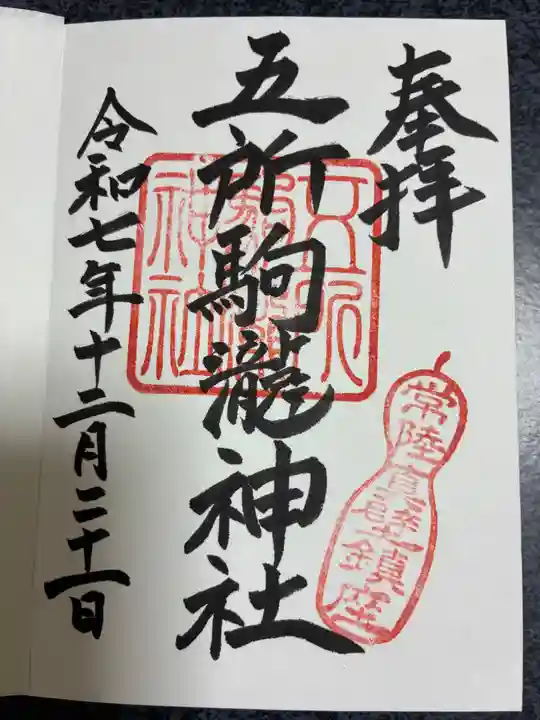 奉拝
五所駒瀧神社
令和七年十二月二十一日
五所駒瀧神社
常陸真壁鎮座